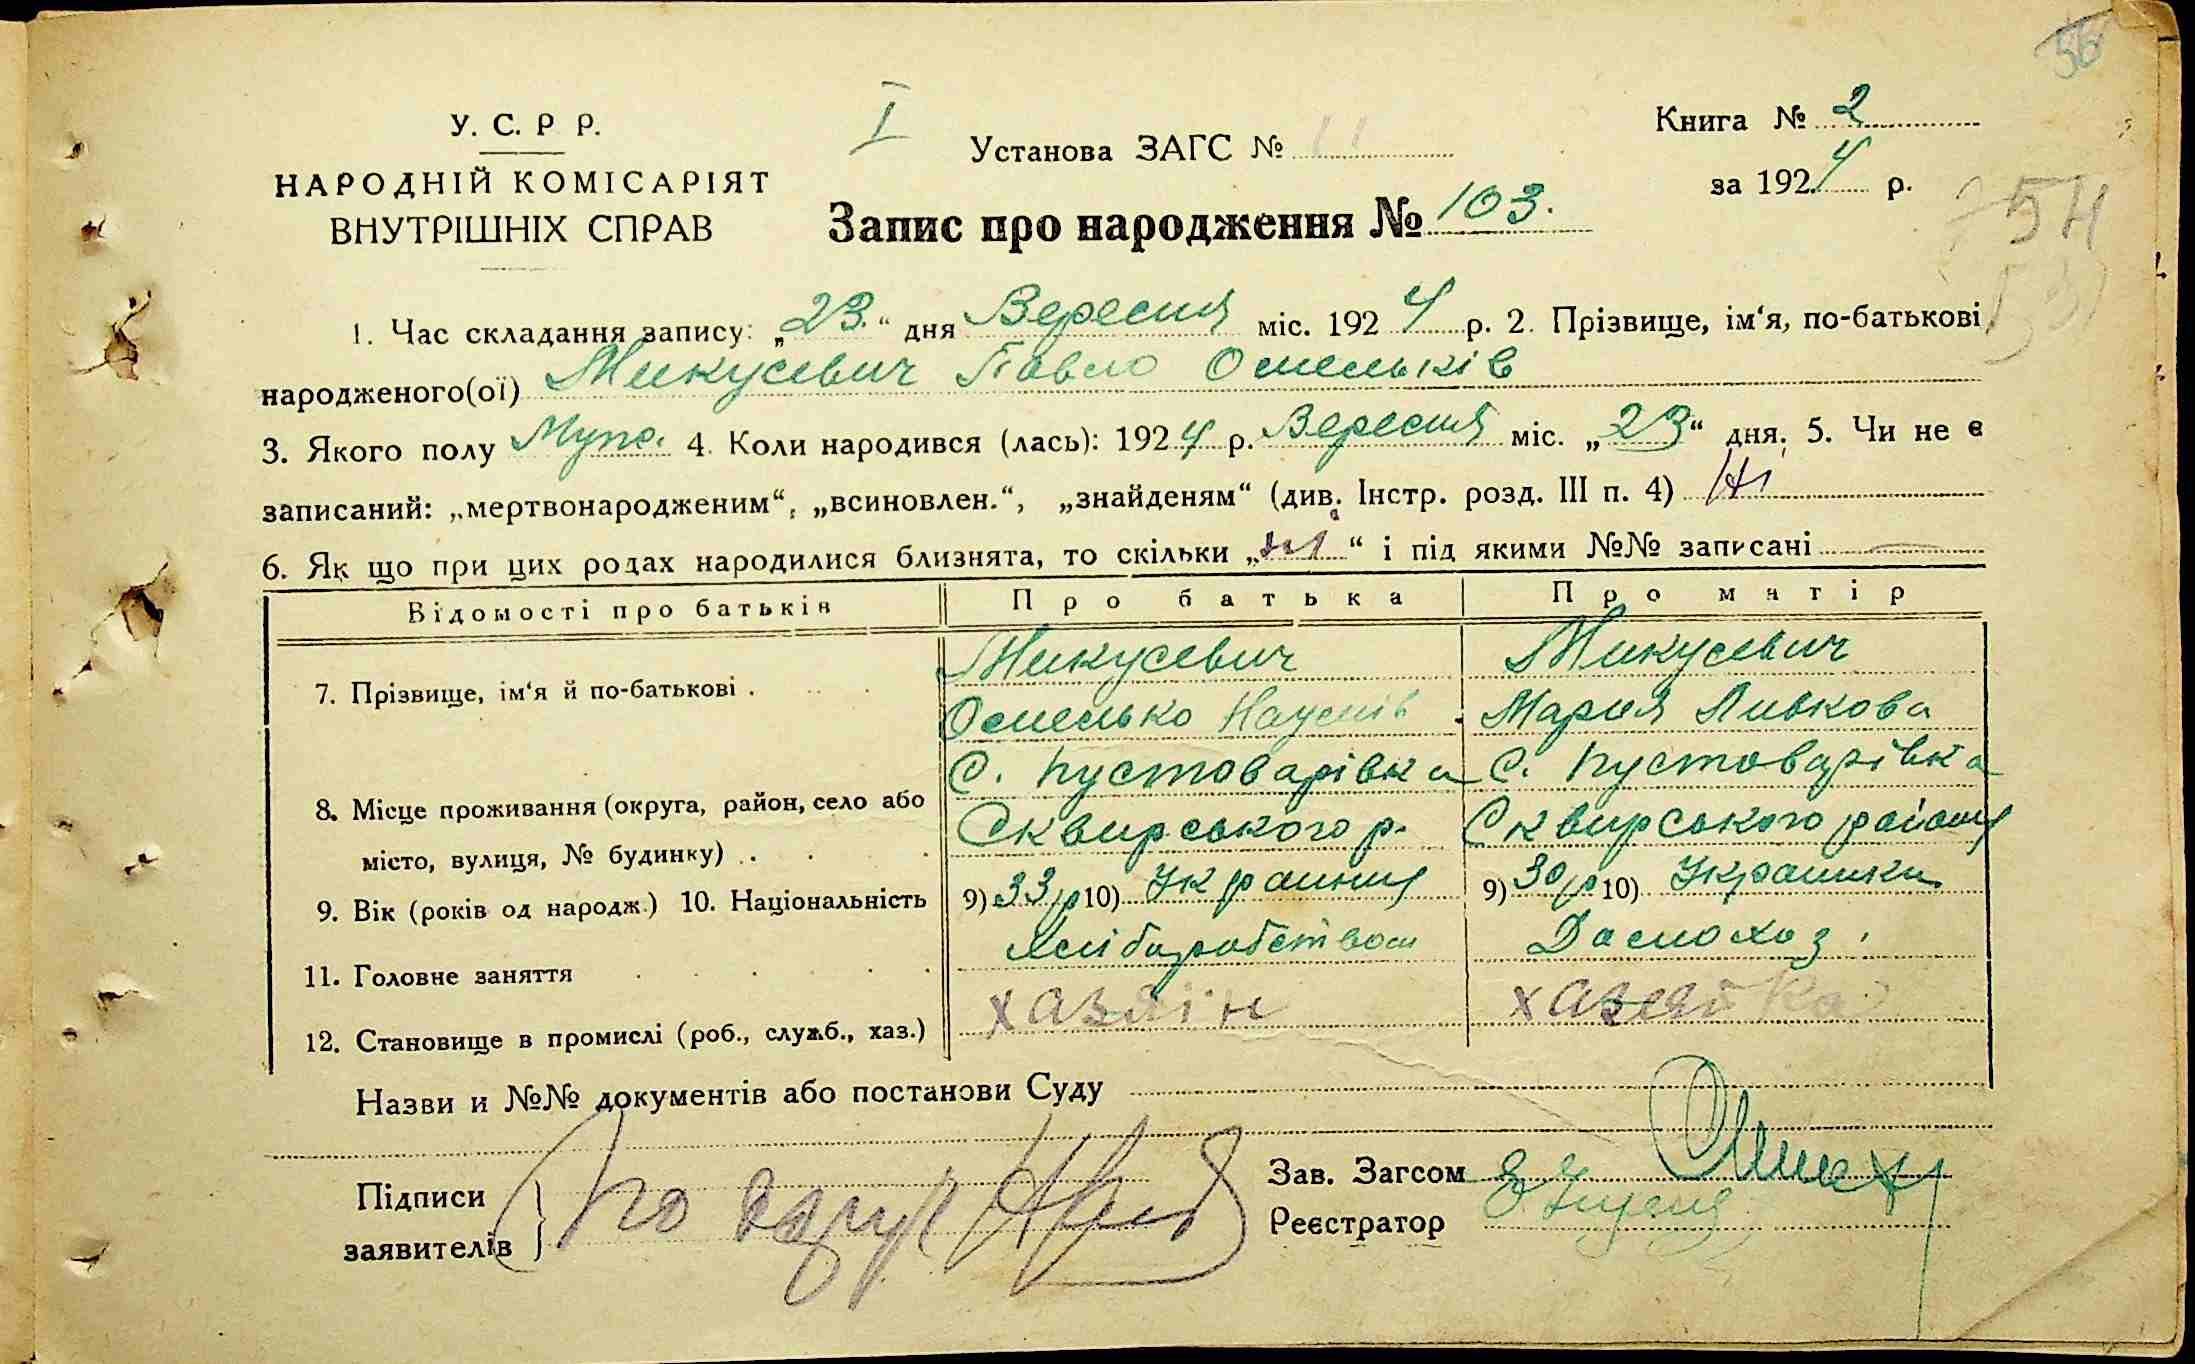 56
У. С. Р Р.
НАРОДНІЙ КОМІСАРІЯТ
ВНУТРІШНІХ СПРАВ
I
Установа ЗАГС № 11
Запис про народження № 103.
Книга № 2
за 1924 р.
1. Час складання запису: „23.“ дня Вересня міс. 1924 р. 2. Прізвище, ім‘я, по-батькові
народженого(ої) Микусевич Павло Омельків
3. Якого полу Муж. 4. Коли народився (лась): 1924 р. Вересня міс. „23“ дня. 5. Чи не є
записаний: „мертвонародженим“, „всиновлен.“, „знайденям“ (див. Інстр. розд. III п. 4) Ні
6. Як що при цих родах народилися близнята, то скільки „ні“ і під якими №№ записані —
Відомості про батьків Про батька Про матір
7. Прізвище, ім‘я й по-батькові . Микусевич Микусевич
Омелько Наумів Мария Ливкова
С. Пустоварівка С. Пустоварівка
8. Місце проживання (округа, район, село або
місто, вулиця, № будинку) . Сквирського р. Сквирського району
9. Вік (років од народж.) 10. Національність 9) 33 р 10) Украинец 9) 30 р 10) Украинка
11. Головне заняття Хліборобством Домохоз.
12. Становище в промислі (роб., служб., хаз.) хазяін хазяйка
Назви и №№ документів або постанови Суду
Підписи
заявителів
Зав. Загсом
Реєстратор